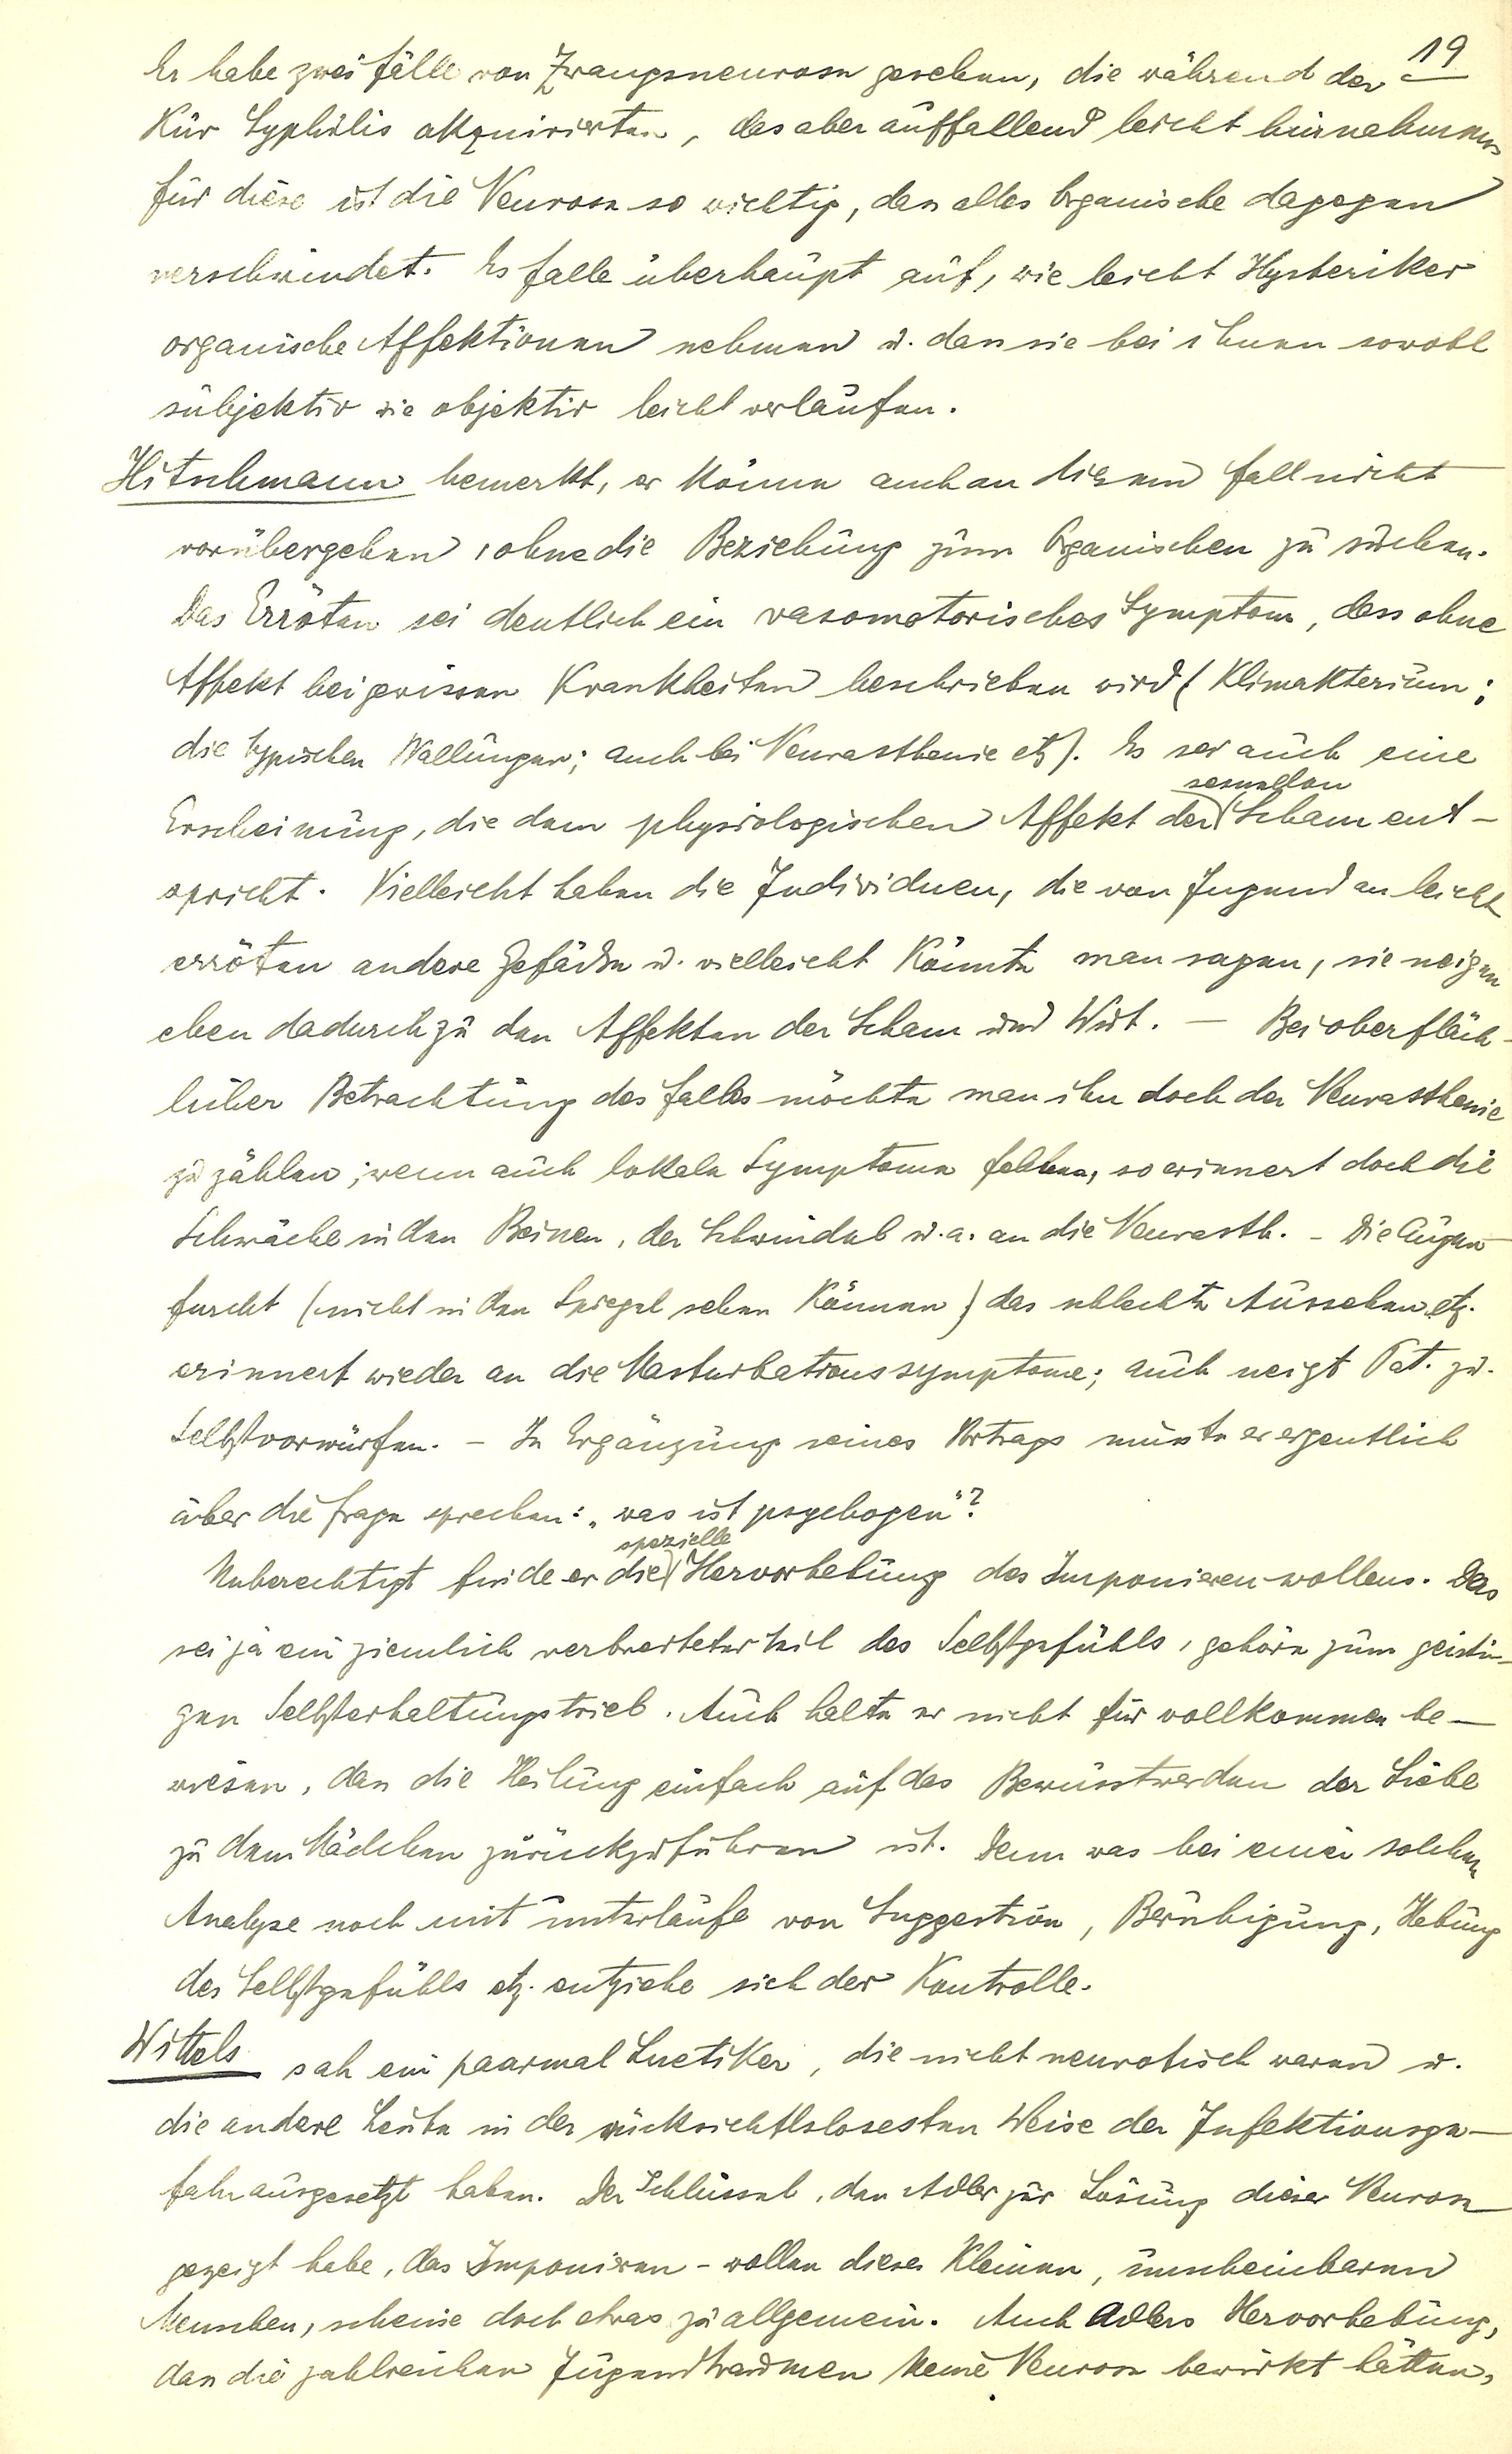 19
Er habe zwei Fälle von Zwangsneurosen gesehen, die während der
Kur Syphilis akquirierten, das aber auffallend leicht hinnahmen
für diese ist die Neurose so wichtig, dass alles Organische dagegen
verschwindet. Es falle überhaupt auf, wie leicht Hysteriker
organische Affektionen nehmen u. dass sie bei ihnen sowohl
subjektiv wie objektiv leicht verlaufen.
Hitschmann bemerkt, er könne auch an diesem Fall nicht
vorübergehen, ohne die Beziehung zum Organischen zu suchen.
Das Erröten sei deutlich ein vasomotorisches Symptom, dass ohne
Affekt bei gewissen Krankheiten beschrieben wird (Klimakterium;
die typischen Wallungen; auch bei Neurasthenie etz). Es sei auch eine
sexuellen
Erscheinung, die dem physiologischen Affekt der Scham ent-
spricht. Vielleicht haben die Individuen, die von Jugend an leicht
erröten andere Gefäße u. vielleicht könnte man sagen, sie neigen
eben dadurch zu den Affekten der Scham und Wut. — Bei oberfläch-
licher Betrachtung des Falles möchte man ihn doch der Neurasthenie
zu zählen; wenn auch lokale Symptome fehlen, so erinnert doch die
Schwäche in den Beinen, der Schwindel u. a. an die Neurasth. - Die Augen
furcht (nicht in den Spiegel sehen können) das schlechte Aussehen etz.
erinnert wieder an die Masturbationssymptome; auch neigt Pat. zu.
Selbstvorwürfen. - In Ergänzung seines Vortrags müsste er eigentlich
über die Frage sprechen: „was ist psychogen"?
spezielle
Unberechtigt finde er die Hervorhebung des Imponieren wollens. Das
sei ja ein ziemlich verbreiteter Teil des Selbstgefühls, gehöre zum geisti-
gen Selbsterhaltungstrieb. Auch halte er nicht für vollkommen be-
wiesen, dass die Heilung einfach auf das Bewusstwerden der Liebe
zu dem Mädchen zurückzuführen ist. Denn was bei einer solchen
Analyse noch mit unterläufe von Suggestion, Beruhigung, Hebung
des Selbstgefühls etz. entziehe sich der Kontrolle.
Wittels sah ein paarmal Luetiker, die nicht neurotisch waren u.
die andere Leute in der rücksichtslosesten Weise der Infektionsge-
fahr ausgesetzt haben. Der Schlüssel, den Adler zur Lösung dieser Neurose
gezeigt habe, das Imponieren-wollen dieses kleinen, unscheinbaren
Menschen, scheine doch etwas zu allgemein. Auch Adlers Hervorhebung,
dass die zahlreichen Jugendtraumen keine Neurose bewirkt hätten,